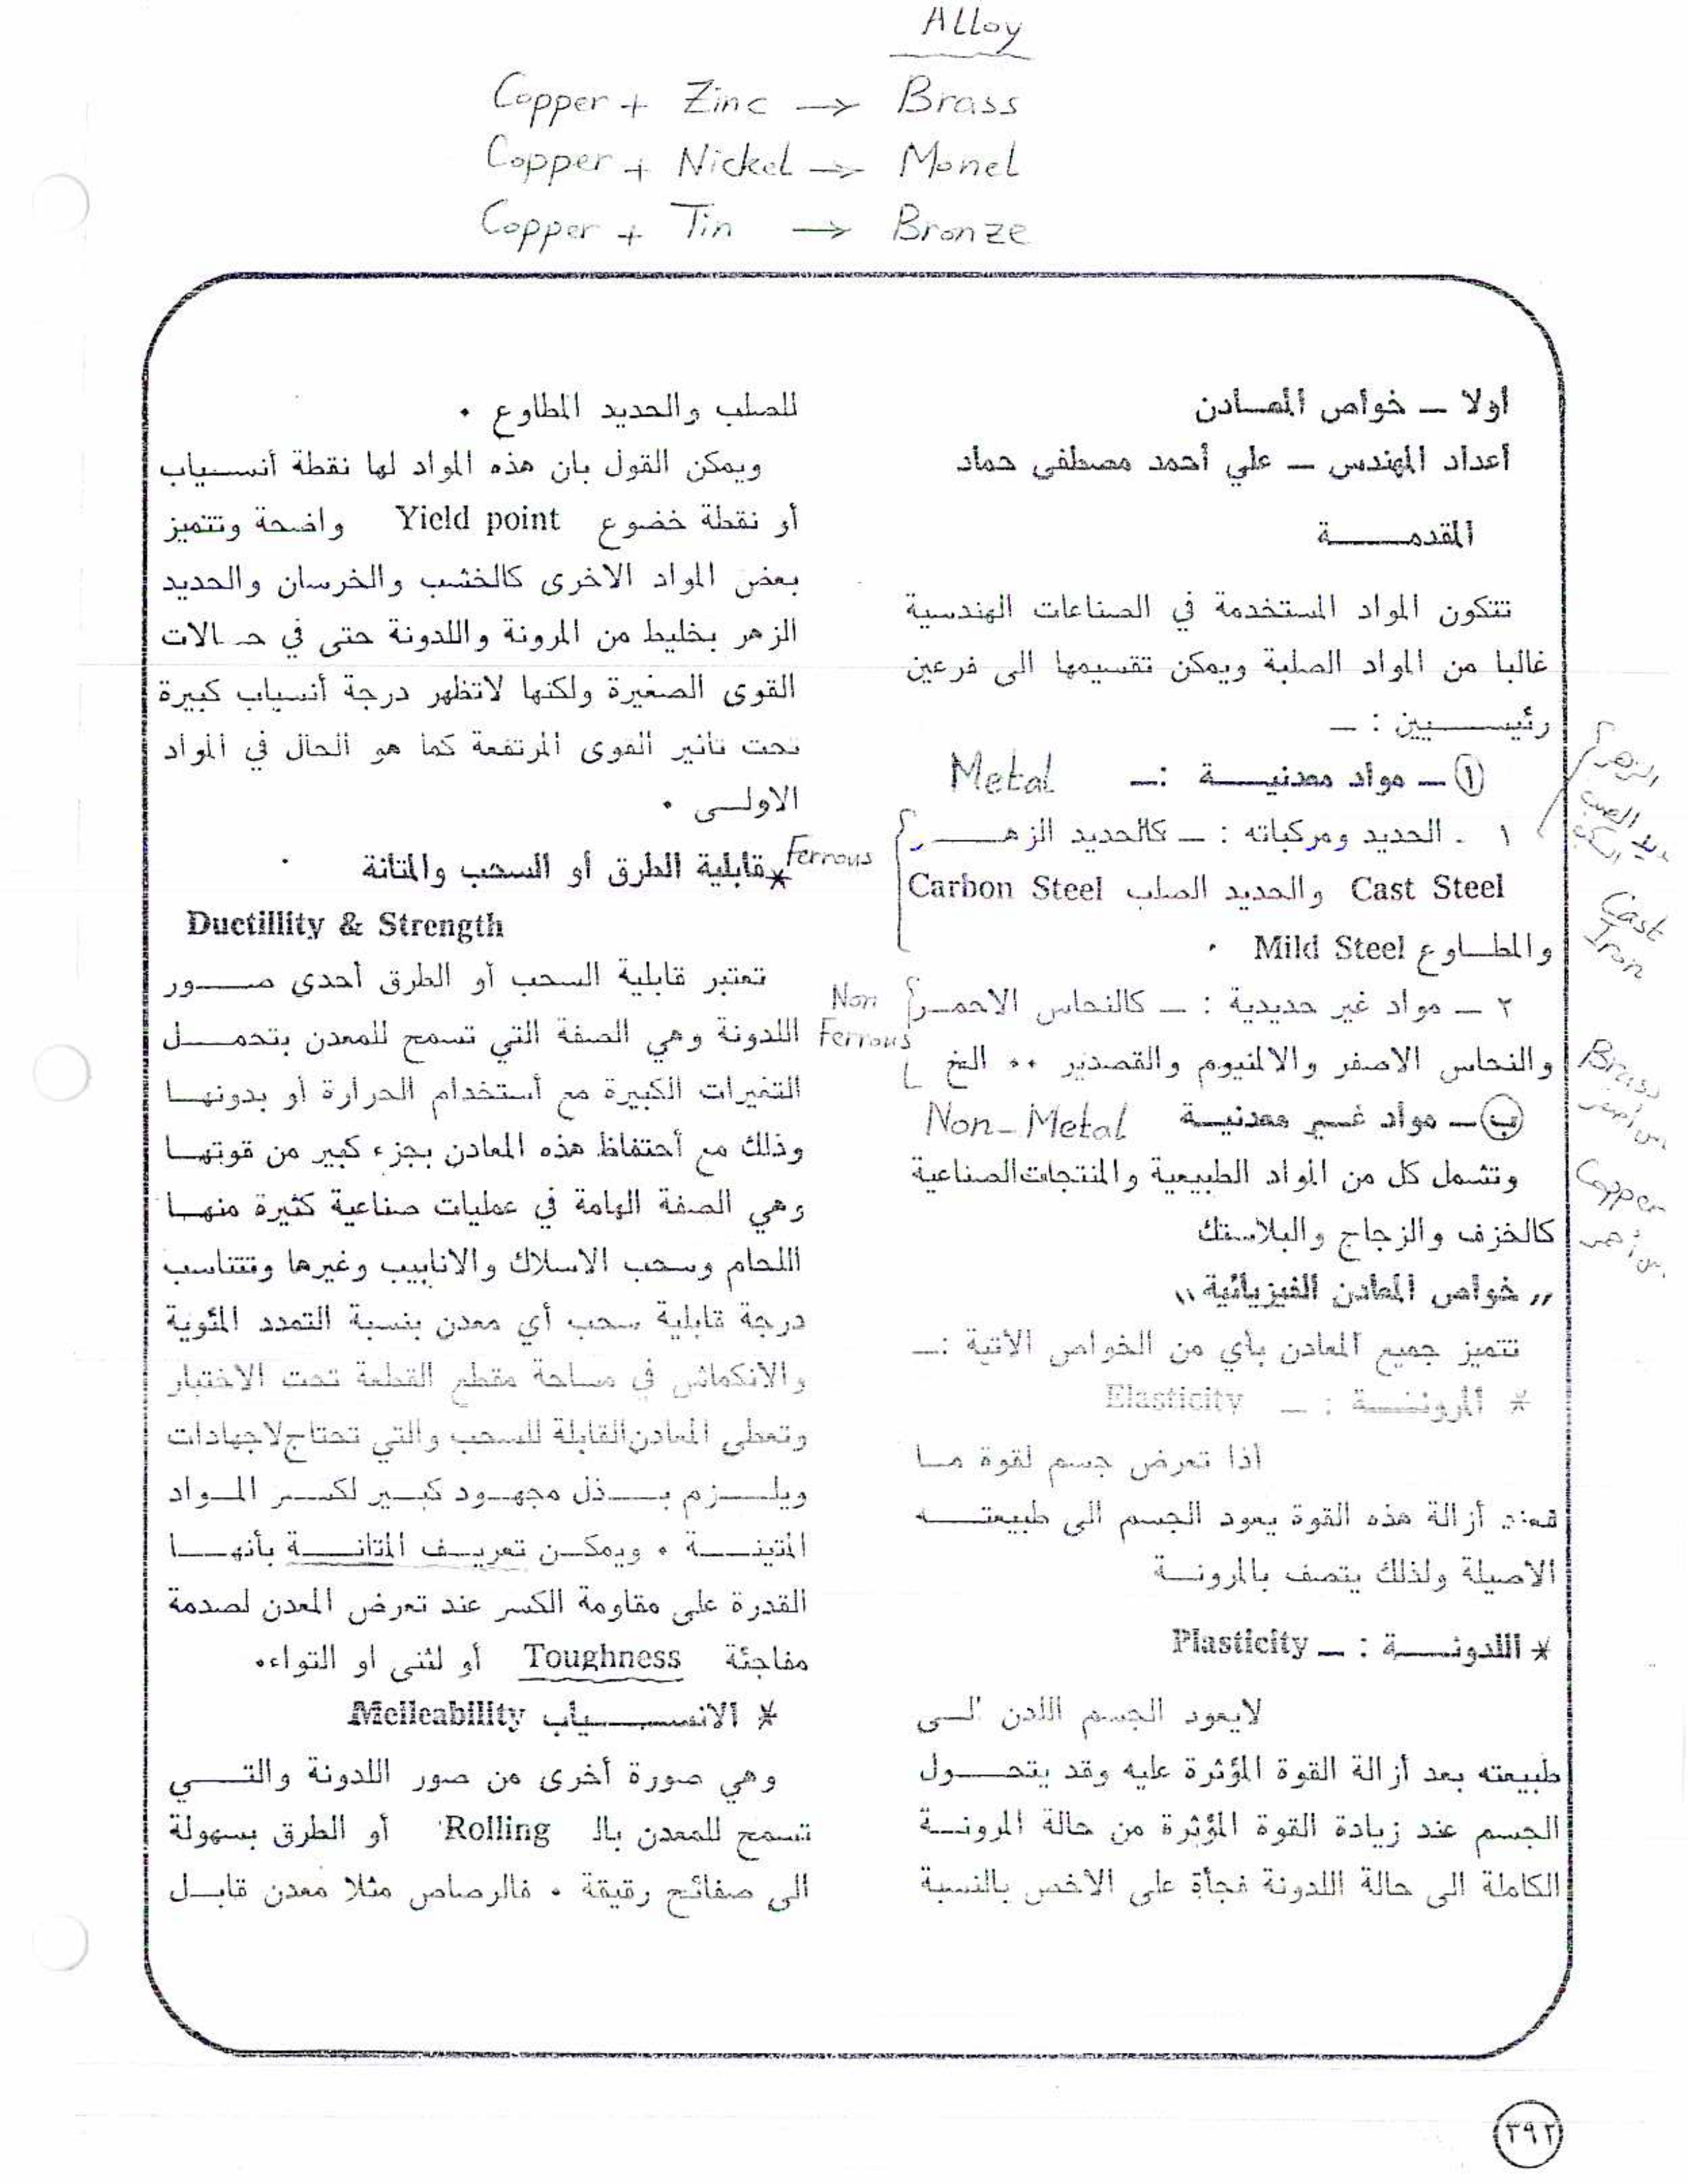 Alloy
Copper + Zinc → Brass
Copper + Nickel → Monel
Copper + Tin → Bronze
اولا – خواص المعادن
أعداد المهندس – علي أحمد مصطفى حماد
المقدمة
تتكون المواد المستخدمة في الصناعات الهندسية
غالبا من المواد الصلبة ويمكن تقسيمها الى فرعين
رئيسيين : –
(ا) – مواد معدنية :– Metal
١ - الحديد ومركباته : – كالحديد الزهر
Cast Steel والحديد الصلب Carbon Steel
والمطاوع Mild Steel ٠
Ferrous
٢ – مواد غير حديدية : – كالنحاس الاحمر
والنحاس الاصفر والالنيوم والقصدير ٠٠ الخ
Non
Ferrous
(ب) – مواد غير معدنية Non-Metal
وتشمل كل من المواد الطبيعية والمنتجات الصناعية
كالخزف والزجاج والبلاستك
" خواص المعادن الفيزيائية "
تتميز جميع المعادن بأي من الخواص الأتية :–
* المرونة : – Elasticity
اذا تعرض جسم لقوة ما
فعند أزالة هذه القوة يعود الجسم الى طبيعته
الاصيلة ولذلك يتصف بالمرونة
* اللدونة : – Plasticity
لايعود الجسم اللدن الى
طبيعته بعد أزالة القوة المؤثرة عليه وقد يتحول
الجسم عند زيادة القوة المؤثرة من حالة المرونة
الكاملة الى حالة اللدونة فجأة على الاخص بالنسبة
الزهر
الصب
Cast
Iron
Brass
أصفر
Copper
أحمر
للصلب والحديد المطاوع ٠
ويمكن القول بان هذه المواد لها نقطة أنسياب
أو نقطة خضوع Yield point واضحة وتتميز
بعض المواد الاخرى كالخشب والخرسان والحديد
الزهر بخليط من المرونة واللدونة حتى في حالات
القوى الصغيرة ولكنها لاتظهر درجة أنسياب كبيرة
تحت تاثير القوى المرتفعة كما هو الحال في المواد
الاولى ٠
* قابلية الطرق أو السحب والمتانة
Ductillity & Strength
تعتبر قابلية السحب أو الطرق أحدى صور
اللدونة وهي الصفة التي تسمح للمعدن بتحمل
التغيرات الكبيرة مع أستخدام الحرارة أو بدونها
وذلك مع أحتفاظ هذه المعادن بجزء كبير من قوتها
وهي الصفة الهامة في عمليات صناعية كثيرة منها
اللحام وسحب الاسلاك والانابيب وغيرها وتتناسب
درجة قابلية سحب أي معدن بنسبة التمدد المئوية
والانكماش في مساحة مقطع القطعة تحت الاختبار
وتعطى المعادن القابلة للسحب والتي تحتاج لاجهادات
ويلزم بذل مجهود كبير لكسر المواد
المتينة ٠ ويمكن تعريف المتانة بأنها
القدرة على مقاومة الكسر عند تعرض المعدن لصدمة
مفاجئة Toughness أو لثنى او التواء٠
* الانسياب Melleability
وهي صورة أخرى من صور اللدونة والتي
تسمح للمعدن بالـ Rolling أو الطرق بسهولة
الى صفائح رقيقة ٠ فالرصاص مثلا معدن قابل
٣٩٢